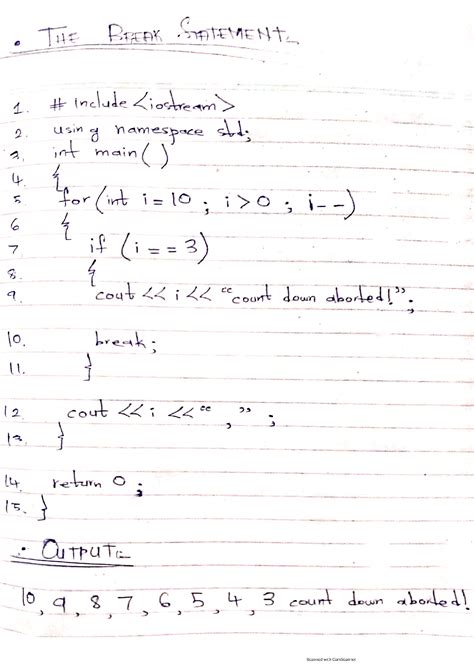 • THE BREAK STATEMENT:-
1. # Include <iostream>
2. using namespace std;
3. int main()
4. {
5 for (int i = 10 ; i > 0 ; i--)
6 {
7 if (i == 3)
8. {
9. cout << i << “count down aborted!”;
10. break;
11. }
12 cout << i << “ , ” ;
13. }
14. return 0 ;
15. }
• OUTPUT:-
10, 9, 8, 7, 6, 5, 4, 3 count down aborted!
Scanned with CamScanner